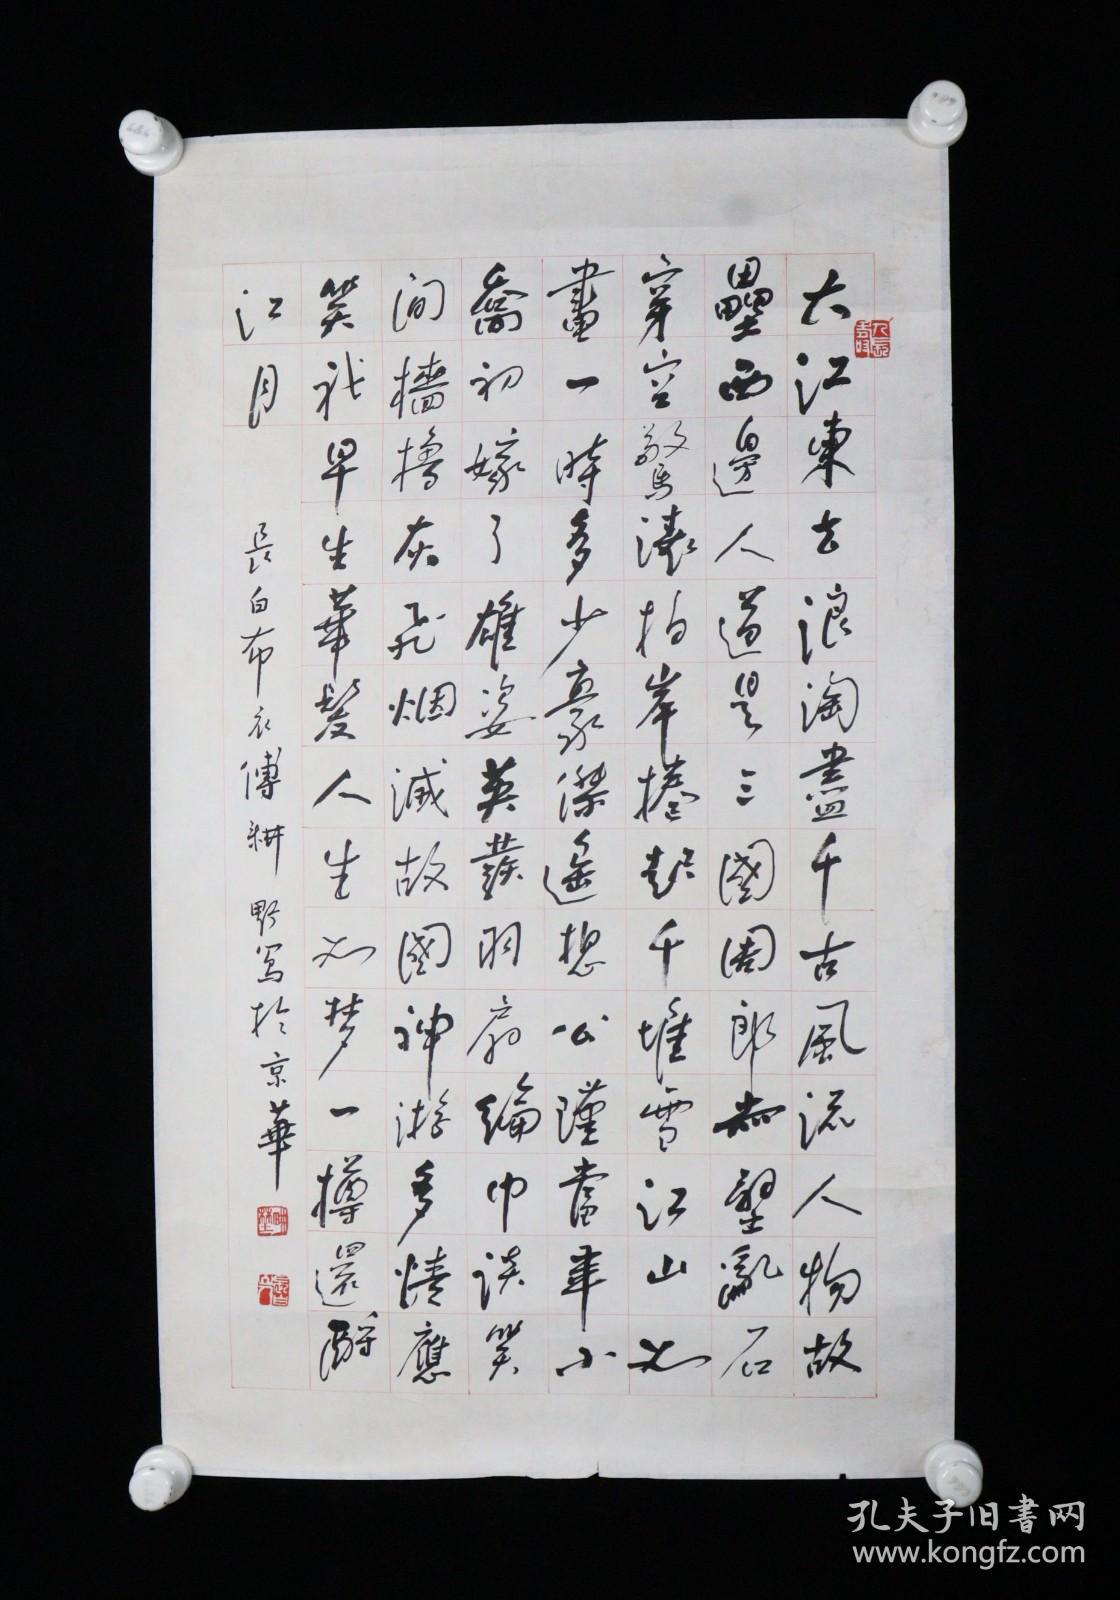 大江東去浪淘盡千古風流人物故
壘西邊人道是三國周郎赤壁亂石
穿空驚濤拍岸捲起千堆雪江山如
畫一時多少豪傑遙想公瑾當年小
喬初嫁了雄姿英發羽扇綸巾談笑
間檣櫓灰飛烟滅故國神游多情應
笑我早生華髮人生如梦一樽還酹
江月
長白布衣傅耕野寫於京華
耕野
孔夫子旧书网
www.kongfz.com